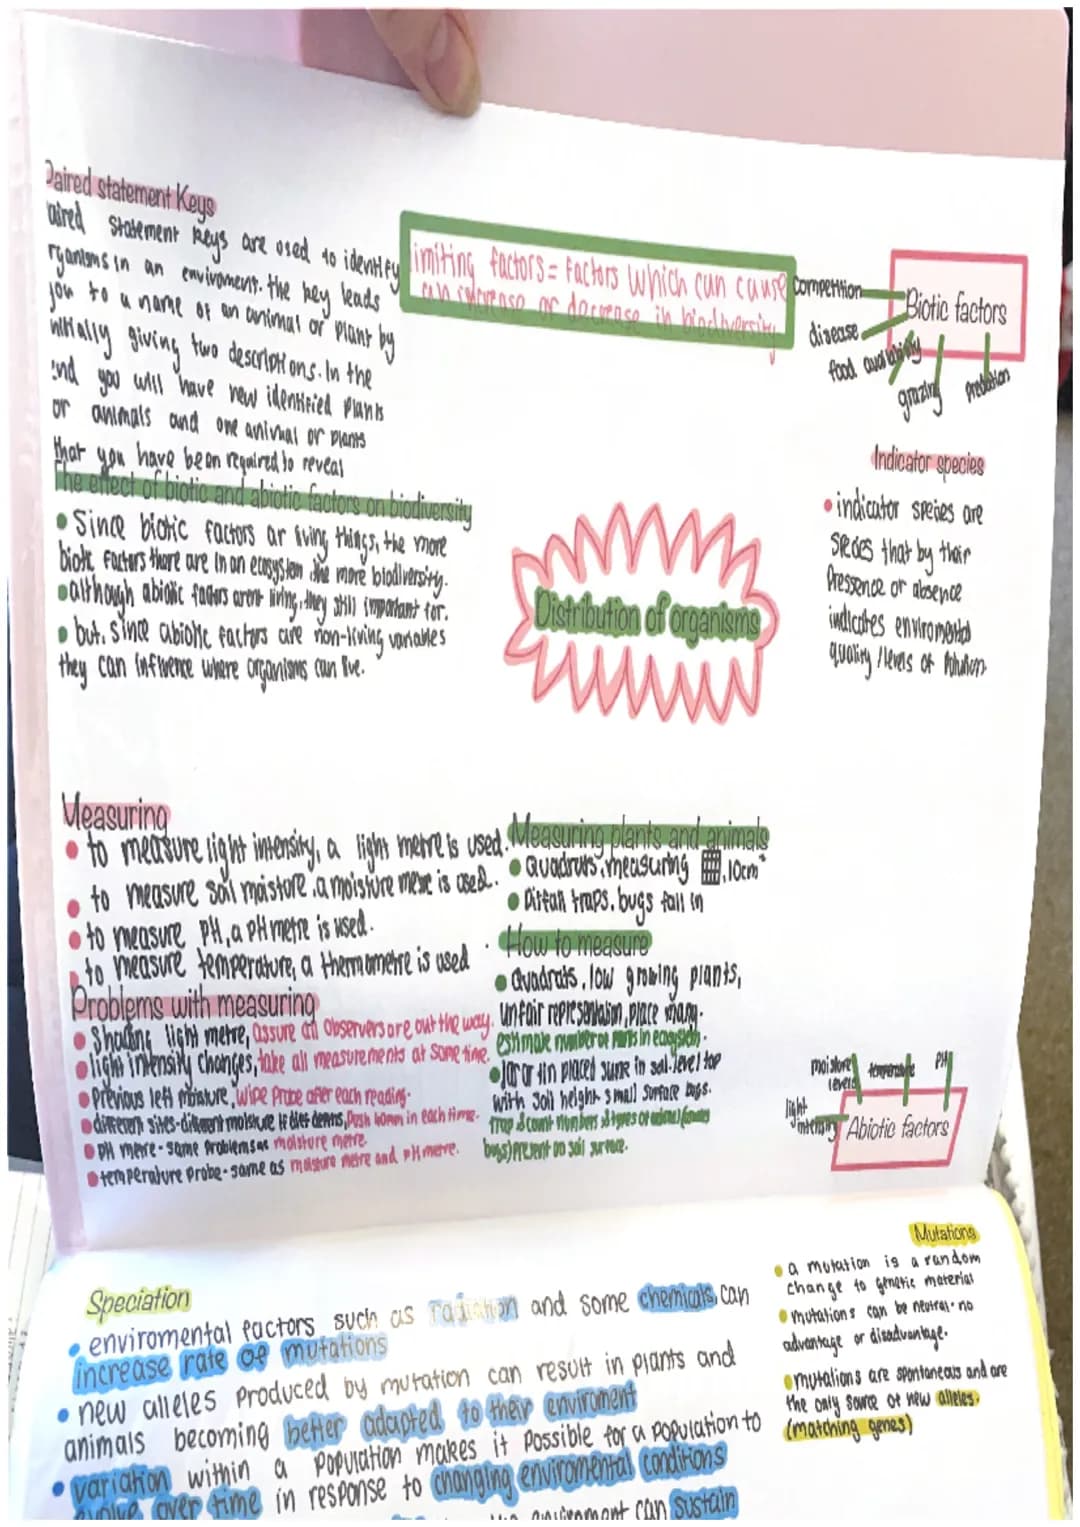 Paired statement Keys
aired statement keys are used to identify
rganisms in an enviroment. the key leads
you to a name of an animal or plant by
initially giving two descriptions. In the
end you will have new identified plants
or animals and one animal or plants
that you have been required to reveal
The effect of biotic and abiotic factors on biodiversity
• Since biotic factors ar living things, the more
biotic factors there are in an ecosystem the more biodiversity.
• although abiotic factors arent living, they still important for.
• but, since abiotic factors are non-living variables
they can influence where organisms can live.
imiting factors = Factors which can cause
an increase or decrease in biodiversity
Biotic factors
competition
disease
food availability
grazing
predation
Indicator species
• indicator species are
species that by their
Presence or absence
indicates enviromental
quality / levels of Pollution.
Distribution of organisms
Measuring
• to measure light intensity, a light metre is used.
• to measure soil moistore a moisture metre is used.
• to measure PH, a PH metre is used.
• to measure temperature, a thermometre is used
Problems with measuring
• Shading light metre, assure all observers are out the way.
• light intensity changes, take all measurements at same time.
• Previous left moisture, wipe Probe after each reading.
• different sites-different moisture, Push in each time.
• PH metre - same problems as moisture metre.
• temperature probe - same as moisture metre and pH metre.
Measuring plants and animals
• Quadrats, measuring 10cm²
• Pitfall traps. bugs fall in
How to measure
• Quadrats, low growing plants,
unfair representation, place many.
estimate number of plants in ecosystem.
• Jar or tin placed in soil. level top
with soil height. small surface bugs.
trap & count numbers & types of
bugs) present on soil surface.
moisture levels
temperature
PH
light intensity
Abiotic factors
Speciation
• enviromental factors such as radiation and some chemicals, can
increase rate of mutations
• new alleles produced by mutation can result in plants and
animals becoming better adapted to their enviroment
• variation within a population makes it possible for a population to
evolve over time in response to changing enviromental conditions
enviroment can sustain
Mutations
• a mutation is a random
change to genetic material
• mutations can be neutral - no
advantage or disadvantage.
• mutations are spontaneous and are
the only source of new alleles.
(matching genes)